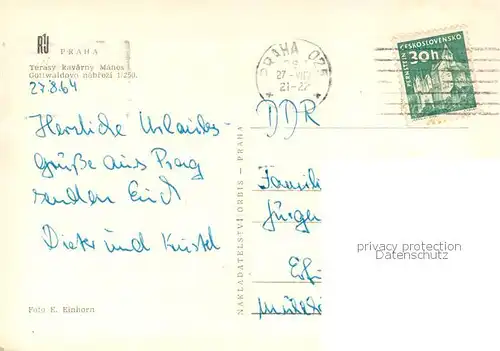 PRAHA
Terasy kavárny Mánes
Gottwaldovo nábřeží 1/250.
27.8.64
Herzliche Urlaubs-
grüße aus Prag
senden Euch
Dieter und Kristel
Foto E. Einhorn
NAKLADATELSTVÍ ORBIS - PRAHA
PRAHA 025
27.-VIII
21-22
PERNŠTEJN ČESKOSLOVENSKO
30h
DDR
Famili
Jürgen
privacy protection
Datenschutz